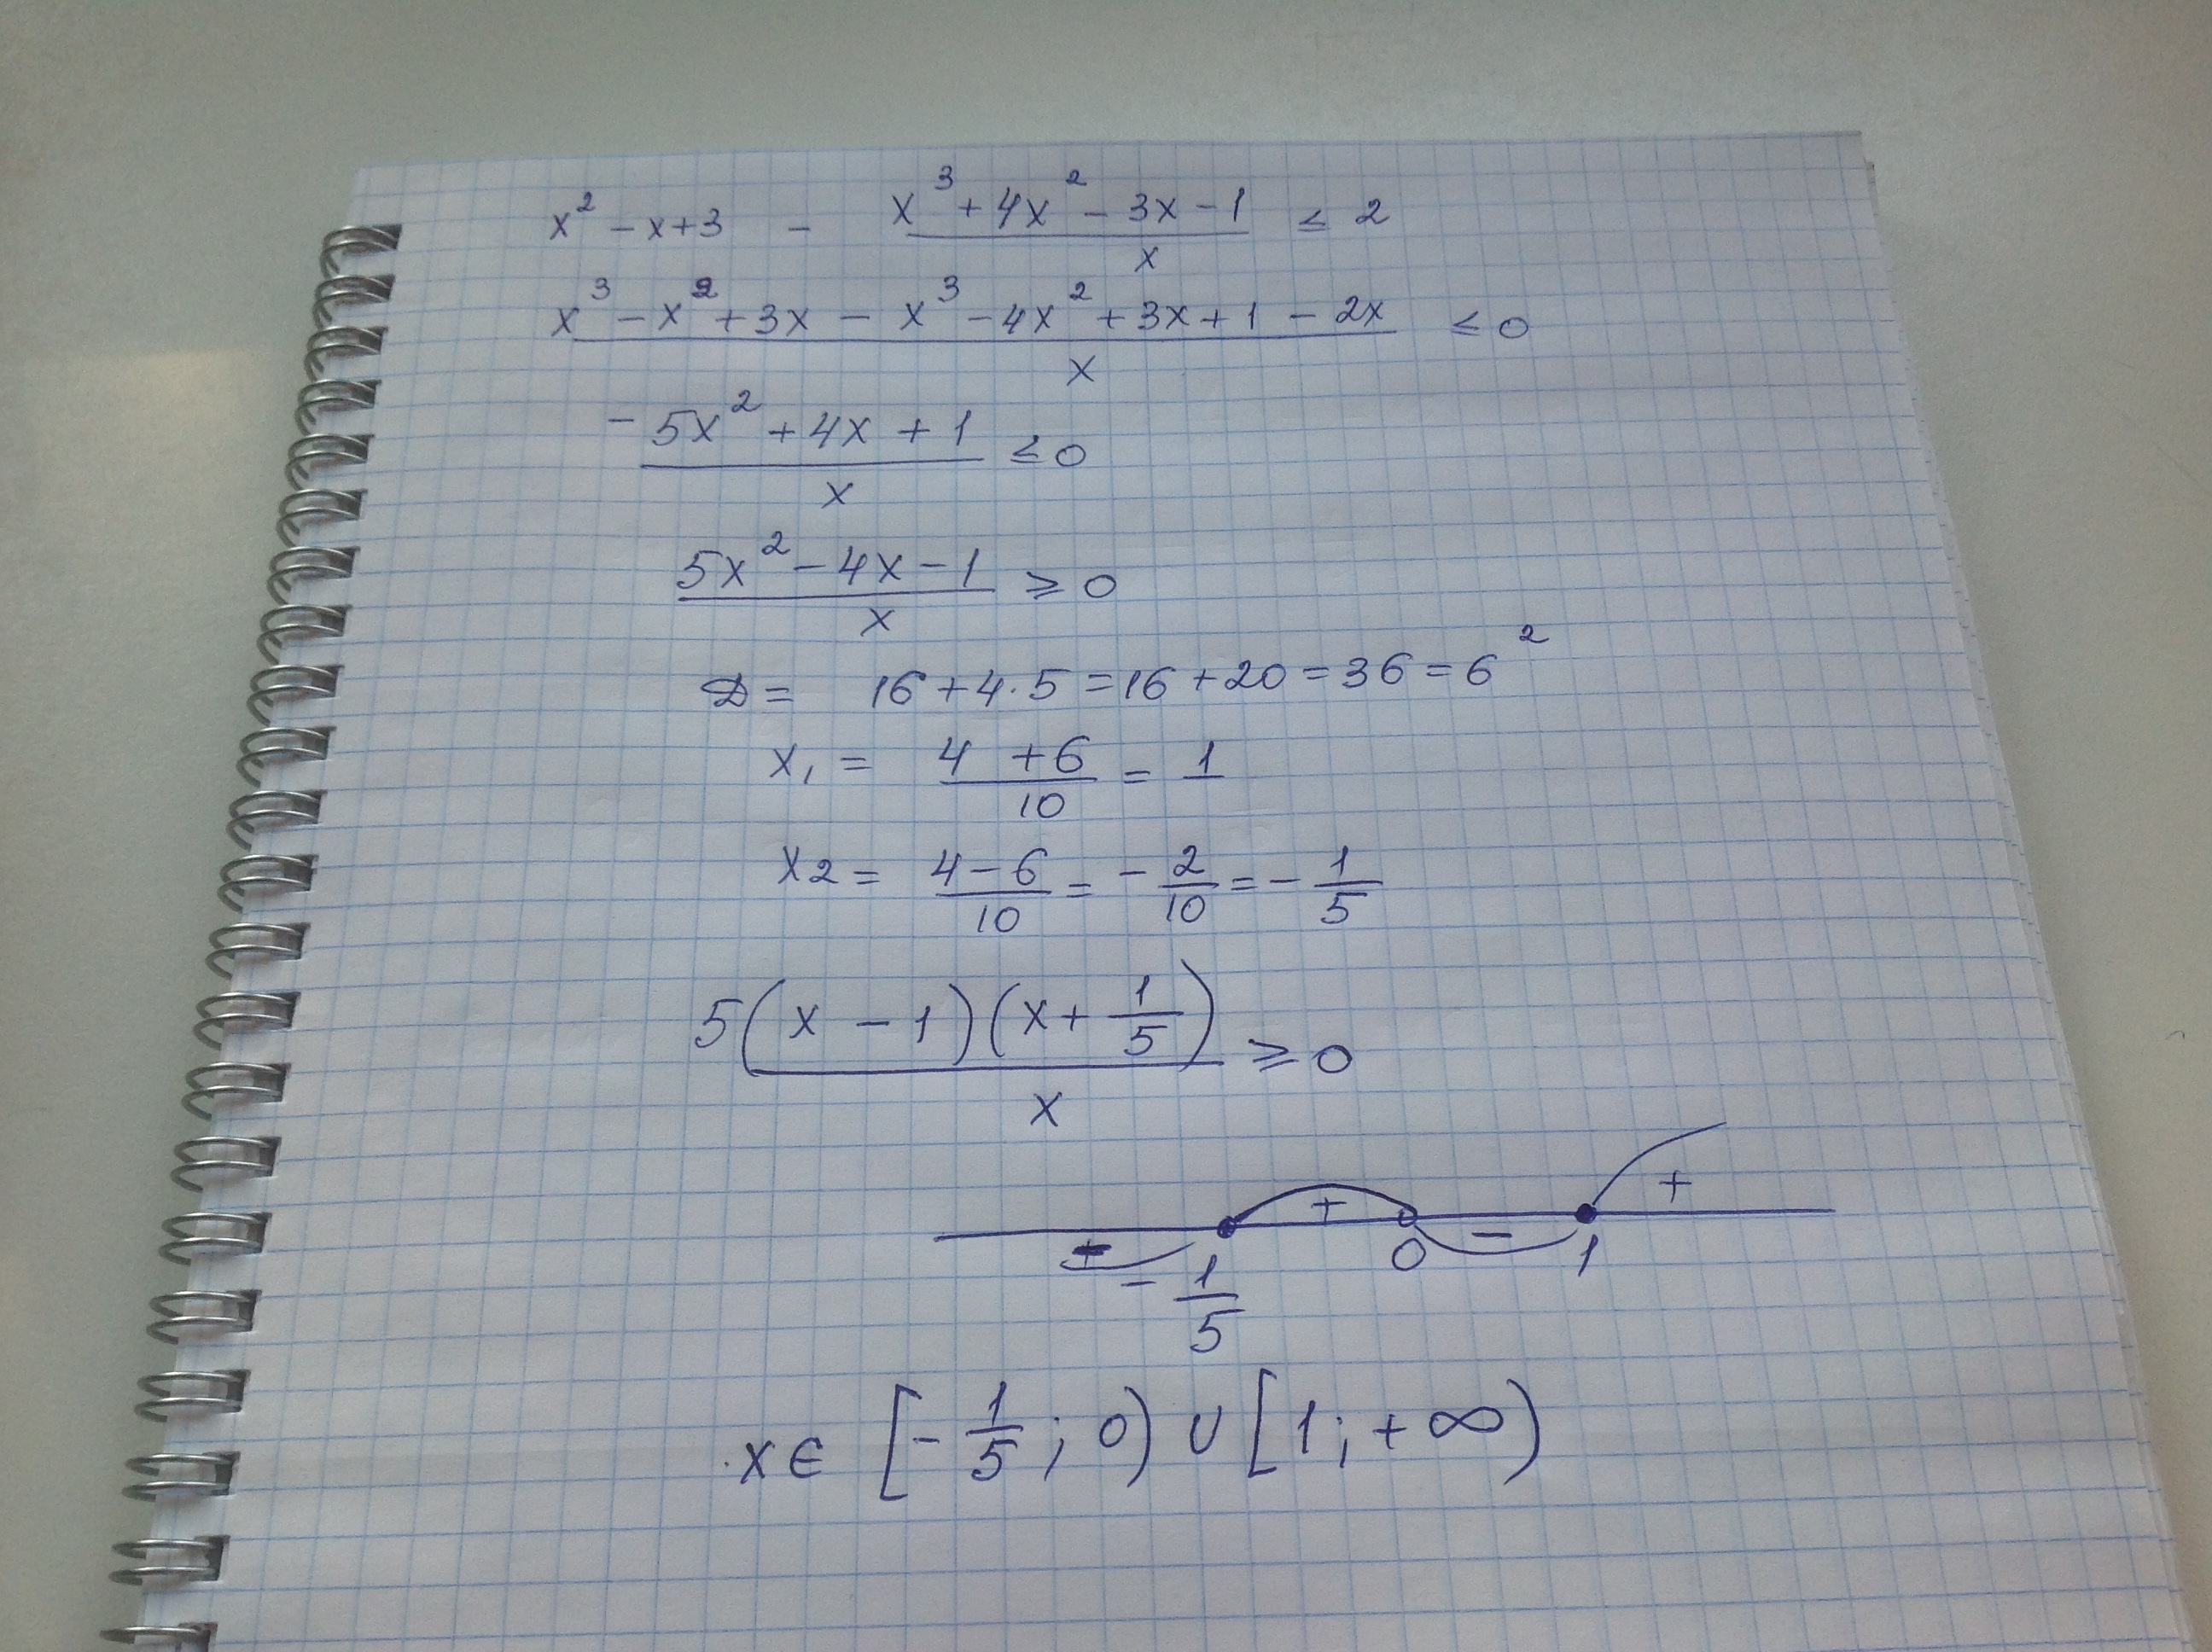 x² - x + 3 - (x³ + 4x² - 3x - 1)/x ≤ 2
(x³ - x² + 3x - x³ - 4x² + 3x + 1 - 2x)/x ≤ 0
(-5x² + 4x + 1)/x ≤ 0
(5x² - 4x - 1)/x ≥ 0
D = 16 + 4·5 = 16 + 20 = 36 = 6²
x₁ = (4 + 6)/10 = 1
x₂ = (4 - 6)/10 = -2/10 = -1/5
5(x - 1)(x + 1/5)/x ≥ 0
- + - +
-1/5 0 1
x ∈ [-1/5; 0) ∪ [1; +∞)